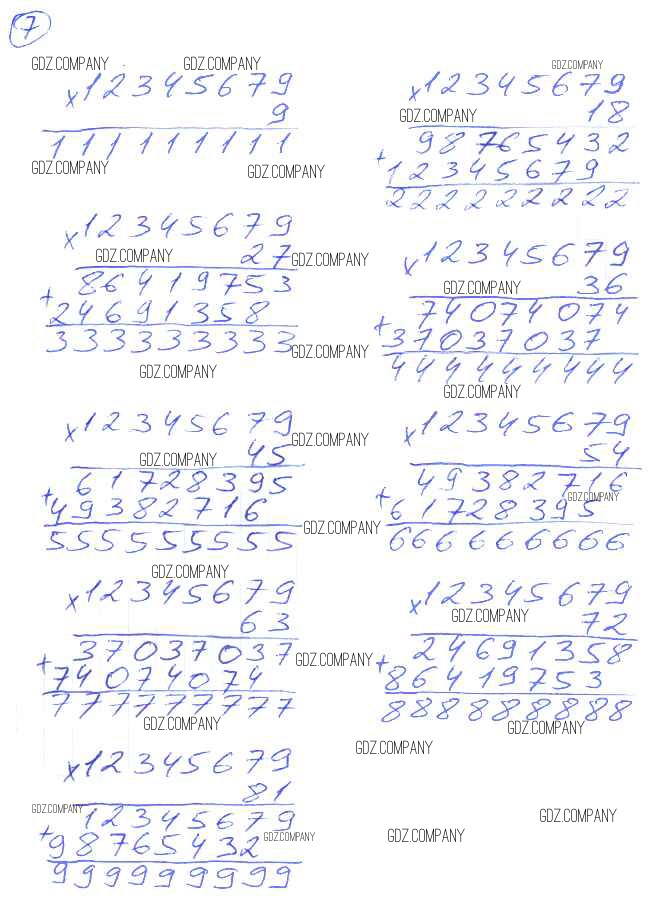 7
GDZ.COMPANY GDZ.COMPANY
x12345679
9
111111111
GDZ.COMPANY GDZ.COMPANY
GDZ.COMPANY
x12345679
GDZ.COMPANY 18
98765432
+
12345679
222222222
x12345679
GDZ.COMPANY 27 GDZ.COMPANY
86419753
+
24691358
333333333 GDZ.COMPANY
GDZ.COMPANY
x12345679
GDZ.COMPANY 36
74074074
+
37037037
444444444
GDZ.COMPANY
x12345679 GDZ.COMPANY
GDZ.COMPANY 45
61728395
+
49382716
555555555 GDZ.COMPANY
GDZ.COMPANY
x12345679
54
49382716
GDZ.COMPANY
+
61728395
666666666
x12345679
63
37037037 GDZ.COMPANY
+
74074074
777777777
GDZ.COMPANY
x12345679
GDZ.COMPANY 72
24691358
+
86419753
888888888
GDZ.COMPANY
GDZ.COMPANY
x12345679
81
GDZ.COMPANY 12345679
+
98765432 GDZ.COMPANY
999999999
GDZ.COMPANY
GDZ.COMPANY